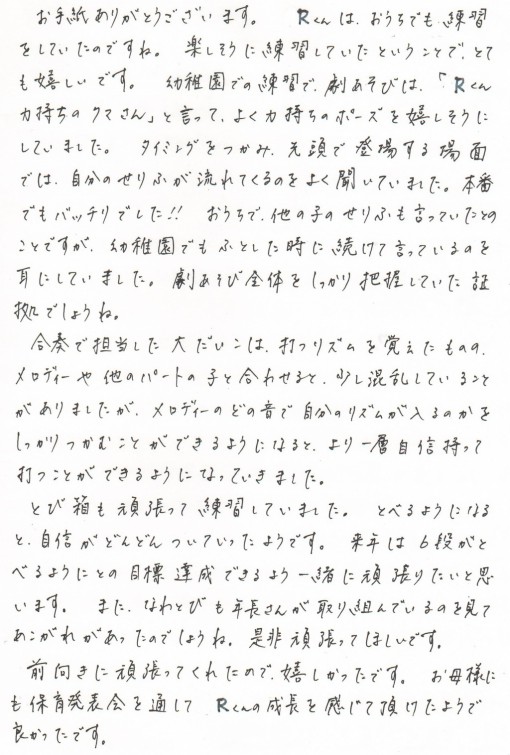 お手紙ありがとうございます。 Rくんは、おうちでも練習
をしていたのですね。 楽しそうに練習していたということで、とて
も嬉しいです。 幼稚園での練習で、劇あそびは、「Rくん
力持ちのクマさん」と言って、よく力持ちのポーズを嬉しそうに
していました。 タイミングをつかみ、先頭で登場する場面
では、自分のせりふが流れてくるのをよく聞いていました。本番
でもバッチリでした!! おうちで、他の子のせりふも言っていたとの
ことですが、幼稚園でもふとした時に続けて言っているのを
耳にしていました。劇あそび全体をしっかり把握していた証
拠でしょうね。
合奏で担当した大だいこは、打つリズムを覚えたものの、
メロディーや他のパートの子と合わせると、少し混乱していること
がありましたが、メロディーのどの音で自分のリズムが入るのかを
しっかりつかむことができるようになると、より一層自信持って
打つことができるようになっていきました。
とび箱も頑張って練習していました。 とべるようになる
と、自信がどんどんついていったようです。 来年は6段がと
べるようにとの目標達成できるよう一緒に頑張りたいと思
います。 また、なわとびも年長さんが取り組んでいるのを見て
あこがれがあったのでしょうね。是非頑張ってほしいです。
前向きに頑張ってくれたので、嬉しかったです。 お母様に
も保育発表会を通して Rくんの成長を感じて頂けたようで
良かったです。